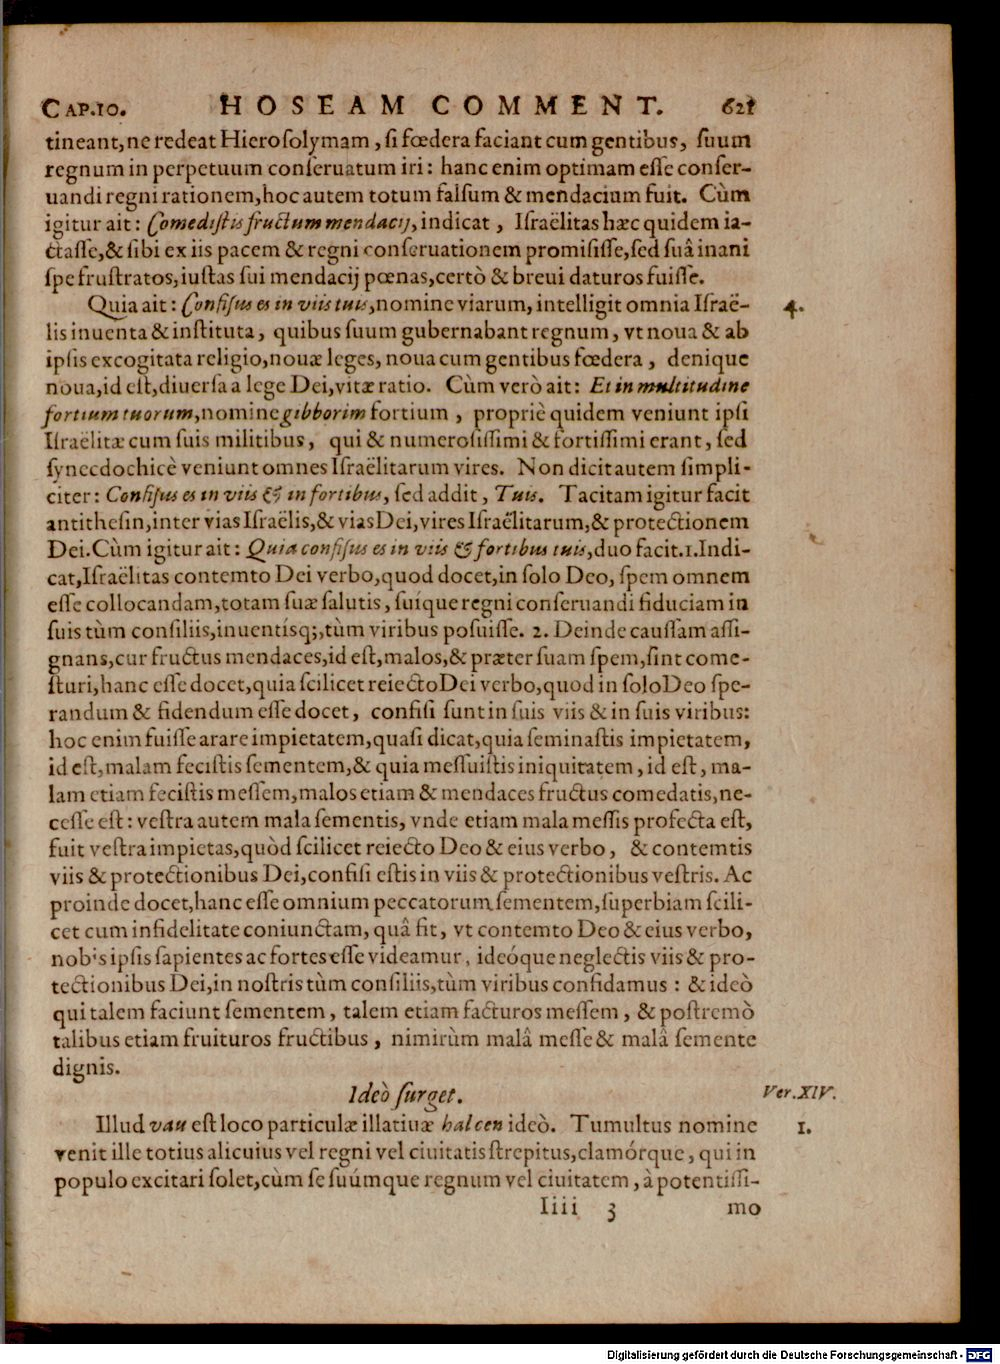 CAP.10. HOSEAM COMMENT. 621
tineant, ne redeat Hierosolymam, si fœdera faciant cum gentibus, suum
regnum in perpetuum conseruatum iri: hanc enim optimam esse conser-
uandi regni rationem, hoc autem totum falsum & mendacium fuit. Cùm
igitur ait: Comedistis fructum mendacij, indicat, Israëlitas hæc quidem ia-
ctasse, & sibi ex iis pacem & regni conseruationem promisisse, sed suâ inani
spe frustratos, iustas sui mendacij pœnas, certò & breui daturos fuisse.
Quia ait: Confisus es in viis tuis, nomine viarum, intelligit omnia Israë- 4.
lis inuenta & instituta, quibus suum gubernabant regnum, vt noua & ab
ipsis excogitata religio, nouæ leges, noua cum gentibus fœdera, denique
noua, id est, diuersa a lege Dei, vitæ ratio. Cùm verò ait: Et in multitudine
fortium tuorum, nomine gibborim fortium, propriè quidem veniunt ipsi
Israëlitæ cum suis militibus, qui & numerosissimi & fortissimi erant, sed
synecdochicè veniunt omnes Israëlitarum vires. Non dicit autem simpli-
citer: Confisus es in viis & in fortibus, sed addit, Tuis. Tacitam igitur facit
antithesin, inter vias Israëlis, & vias Dei, vires Israëlitarum, & protectionem
Dei. Cùm igitur ait: Quia confisus es in viis & fortibus tuis, duo facit. 1. Indi-
cat, Israëlitas contemto Dei verbo, quod docet, in solo Deo, spem omnem
esse collocandam, totam suæ salutis, suíque regni conseruandi fiduciam in
suis tùm consiliis, inuentísq;, tùm viribus posuisse. 2. Deinde caussam assi-
gnans, cur fructus mendaces, id est, malos, & præter suam spem, sint come-
sturi, hanc esse docet, quia scilicet reiecto Dei verbo, quod in solo Deo spe-
randum & fidendum esse docet, confisi sunt in suis viis & in suis viribus:
hoc enim fuisse arare impietatem, quasi dicat, quia seminastis impietatem,
id est, malam fecistis sementem, & quia messuistis iniquitatem, id est, ma-
lam etiam fecistis messem, malos etiam & mendaces fructus comedatis, ne-
cesse est: vestra autem mala sementis, vnde etiam mala messis profecta est,
fuit vestra impietas, quòd scilicet reiecto Deo & eius verbo, & contemtis
viis & protectionibus Dei, confisi estis in viis & protectionibus vestris. Ac
proinde docet, hanc esse omnium peccatorum sementem, superbiam scili-
cet cum infidelitate coniunctam, quâ fit, vt contemto Deo & eius verbo,
nobis ipsis sapientes ac fortes esse videamur, ideóque neglectis viis & pro-
tectionibus Dei, in nostris tùm consiliis, tùm viribus confidamus: & ideò
qui talem faciunt sementem, talem etiam facturos messem, & postremò
talibus etiam fruituros fructibus, nimirùm malâ messe & malâ semente
dignis.
Ideò surget. Ver. XIV.
Illud vau est loco particulæ illatiuæ halcen ideò. Tumultus nomine 1.
venit ille totius alicuius vel regni vel ciuitatis strepitus, clamórque, qui in
populo excitari solet, cùm se suúmque regnum vel ciuitatem, à potentissi-
Iiii 3 mo
Digitalisierung gefördert durch die Deutsche Forschungsgemeinschaft - DFG